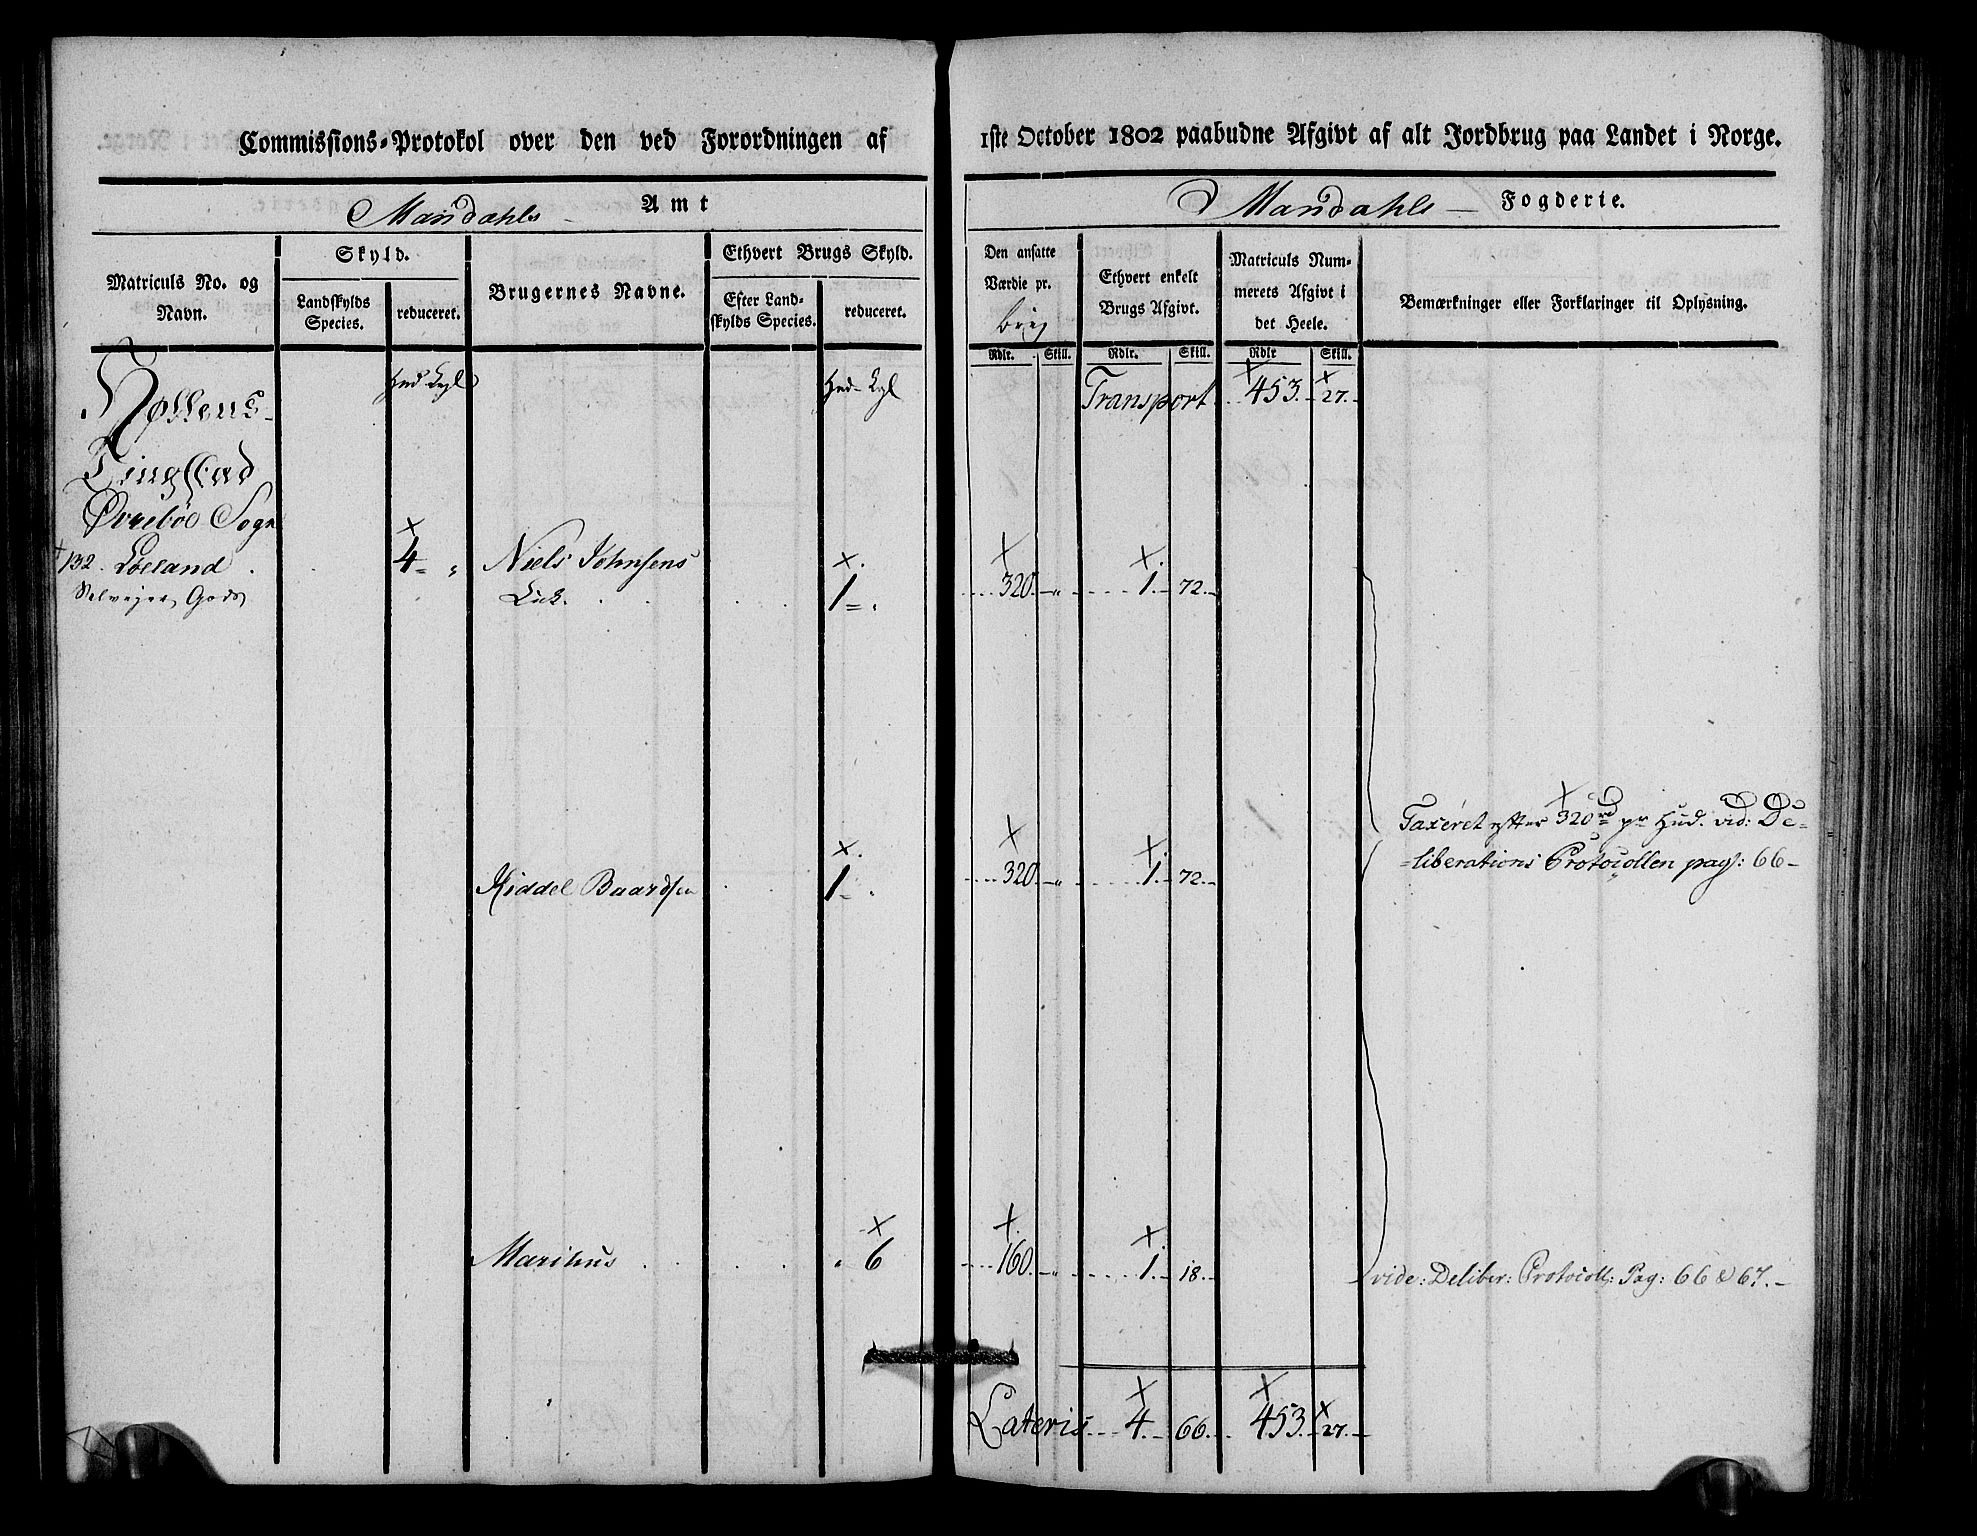 Commissions-Protokol over den ved Forordningen af 1ste October 1802 paabudne Afgivt af alt Jordbrug paa Landet i Norge.
Mandahls Amt
Mandahls Fogderie.
Matriculs No. og Navn.
Skyld.
Landskylds Species.
reduceret.
Brugernes Navne.
Ethvert Brugs Skyld.
Efter Landskylds Species.
reduceret.
Den ansatte Værdie pr. brug
Ethvert enkelt Brugs Afgivt.
Matriculs Nummerets Afgivt i det Heele.
Bemærkninger eller Forklaringer til Oplysning.
Rdlr. Skill. Rdlr. Skill. Rdlr Skill.
Hud Kgl Hud- Kgl Transport 453. 27.
Tingstad
Øvrebøe Sogn
132. Løeland 4 „ Niels Johnsens 1 „ 320. „ 1. 72.
Selveyer Gods
Taxeret efter 320 rd pr Hud. vid: De=
=liberations Protocollen pag: 66-
Kiddel Baardsen 1 „ 320 „ 1. 72.
Marihus „ 6 160. „ 1. 18. vide: Deliber: Protocoll: Pag: 66 & 67.
Lateris 4. 66. 453. 27.